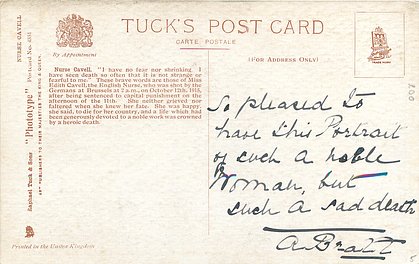 TUCK'S POST CARD
CARTE POSTALE
By Appointment
(FOR ADDRESS ONLY)
Nurse Cavell. "I have no fear nor shrinking. I
have seen death so often that it is not strange or
fearful to me." These brave words are those of Miss
Edith Cavell, the English Nurse, who was shot by the
Germans at Brussels at 2 a.m., on October 12th, 1915,
after being sentenced to capital punishment on the
afternoon of the 11th. She neither grieved nor
faltered when she knew her fate. She was happy,
she said, to die for her country, and a life which had
been generously devoted to a noble work was crowned
by a heroic death.
NURSE CAVELL
Raphael Tuck & Sons' "Phototype" Postcard No.
ART PUBLISHERS TO THEIR MAJESTIES THE KING & QUEEN.
Printed in the United Kingdom
TRADE MARK
So pleased to
have this Portrait
of such a noble
Woman, but
such a sad death
A Bratt